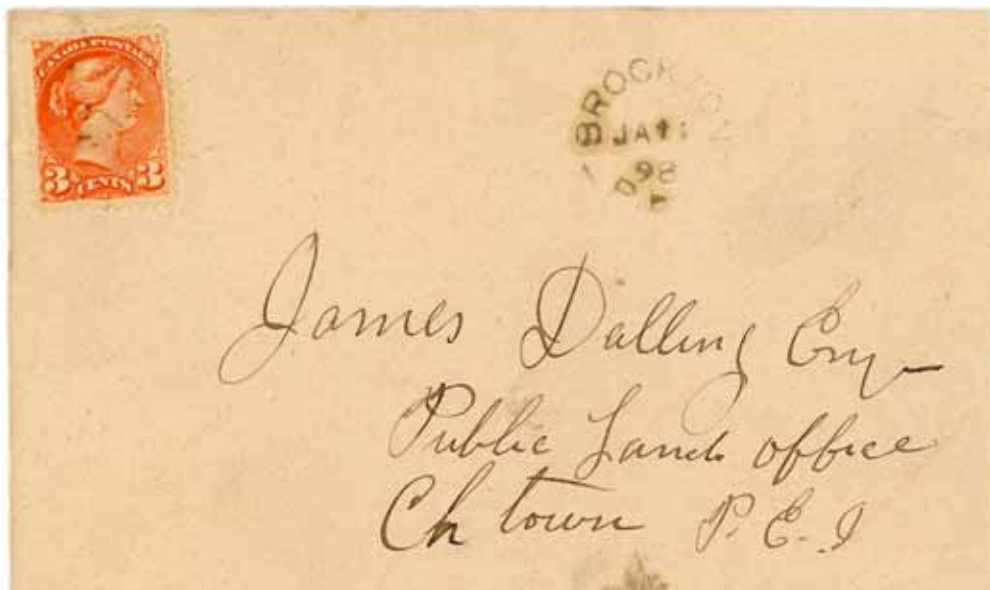 CANADA POSTAGE
3 CENTS 3
BROCK
JA 11
98
James Dalling Esq
Public Lands office
Ch town P. E. I